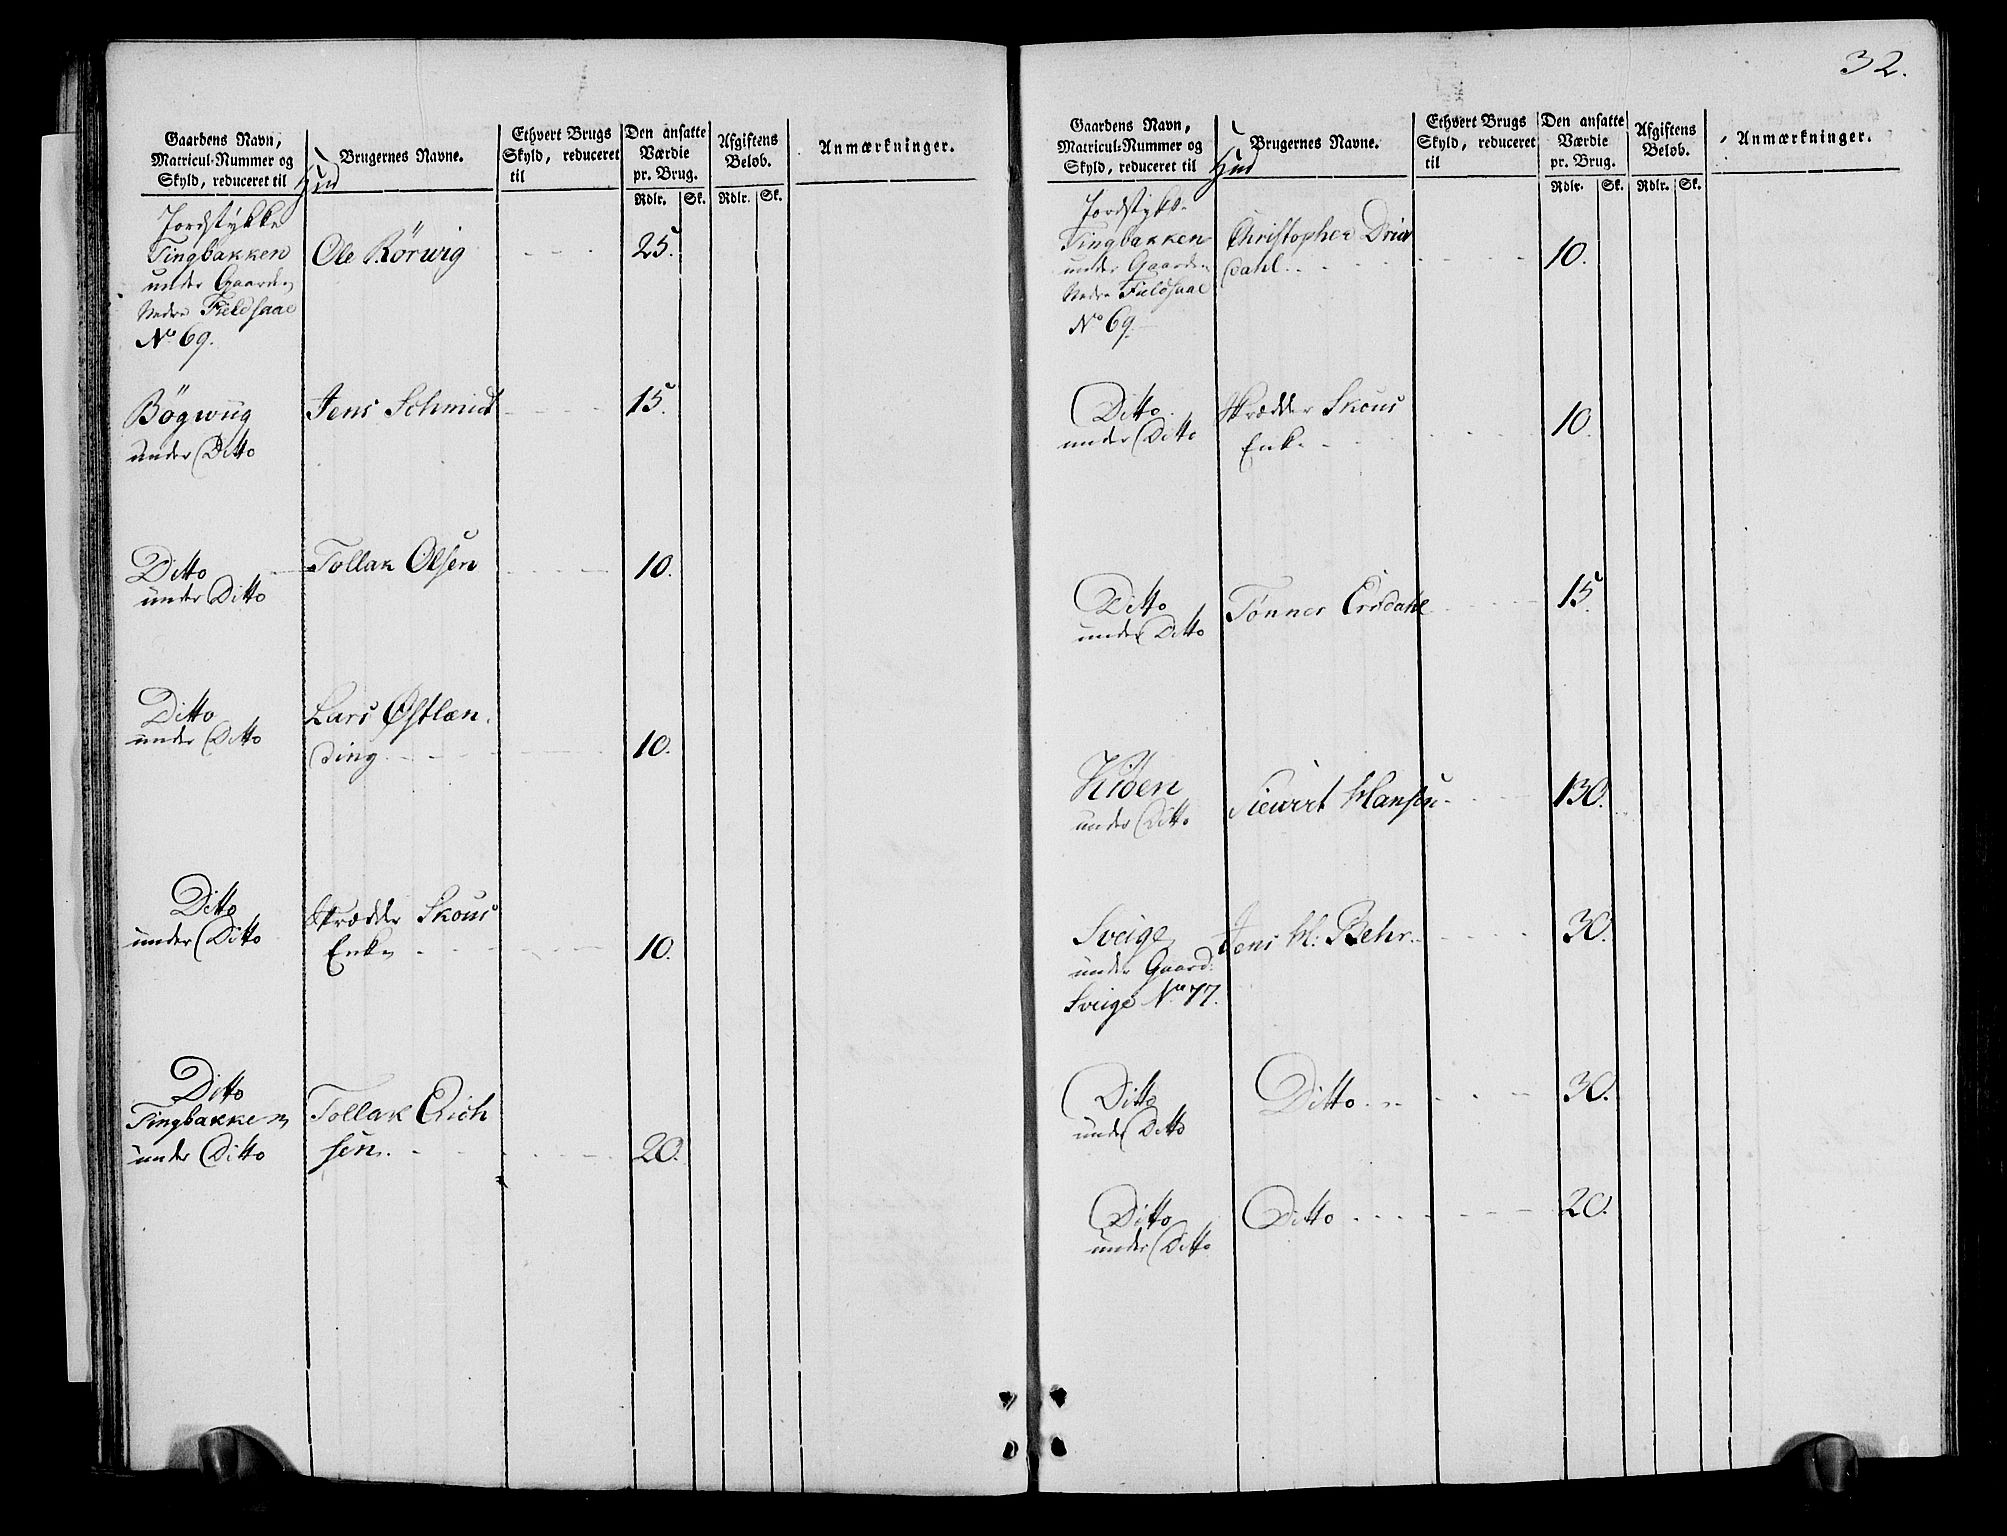 Gaardens Navn,
Matricul-Nummer og
Skyld, reduceret til
Hud
Brugernes Navne.
Ethvert Brugs
Skyld, reduceret
til
Den ansatte
Værdie
pr. Brug.
Rdlr. Sk.
Afgiftens
Beløb.
Rdlr. Sk.
Anmærkninger.
Jordstykke
Tingbakken
under Gaarden
Nedre Fieldsaae
No 69.
Ole Rörwig
25.
Bögwüg
under Ditto
Jens Schmidt
15.
Ditto
under Ditto
Tollak Olsen
10.
Ditto
under Ditto
Lars Østlen
ding
10.
Ditto
under Ditto
Skrædder Skous
Enke
10.
Ditto
Tingbakken
under Ditto
Tollak Erich
sen.
20.
32.
Gaardens Navn,
Matricul-Nummer og
Skyld, reduceret til
Hud
Brugernes Navne.
Ethvert Brugs
Skyld, reduceret
til
Den ansatte
Værdie
pr. Brug.
Rdlr. Sk.
Afgiftens
Beløb.
Rdlr. Sk.
Anmærkninger.
Jordstykke
Tingbakken
under Gaarden
Nedre Fieldsaae
No 69.
Christopher
dahl.
10.
Ditto
under Ditto
Skrædder Skous
Enke
10.
Ditto
under Ditto
Tønnes Ersdahl
15.
under Ditto
Siewert Hansen
130.
Sveige
under Gaard:
Sveige No 77.
Jens H: Behr
30.
Ditto
under Ditto
Ditto
30.
Ditto
under Ditto
Ditto
20.